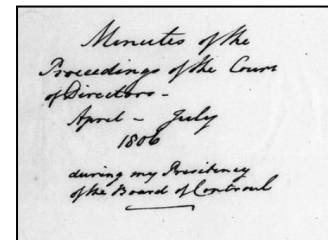 Minutes of the
Proceedings of the Court
of Directors -
April - July
1806
during my Presidency
of the Board of Controul